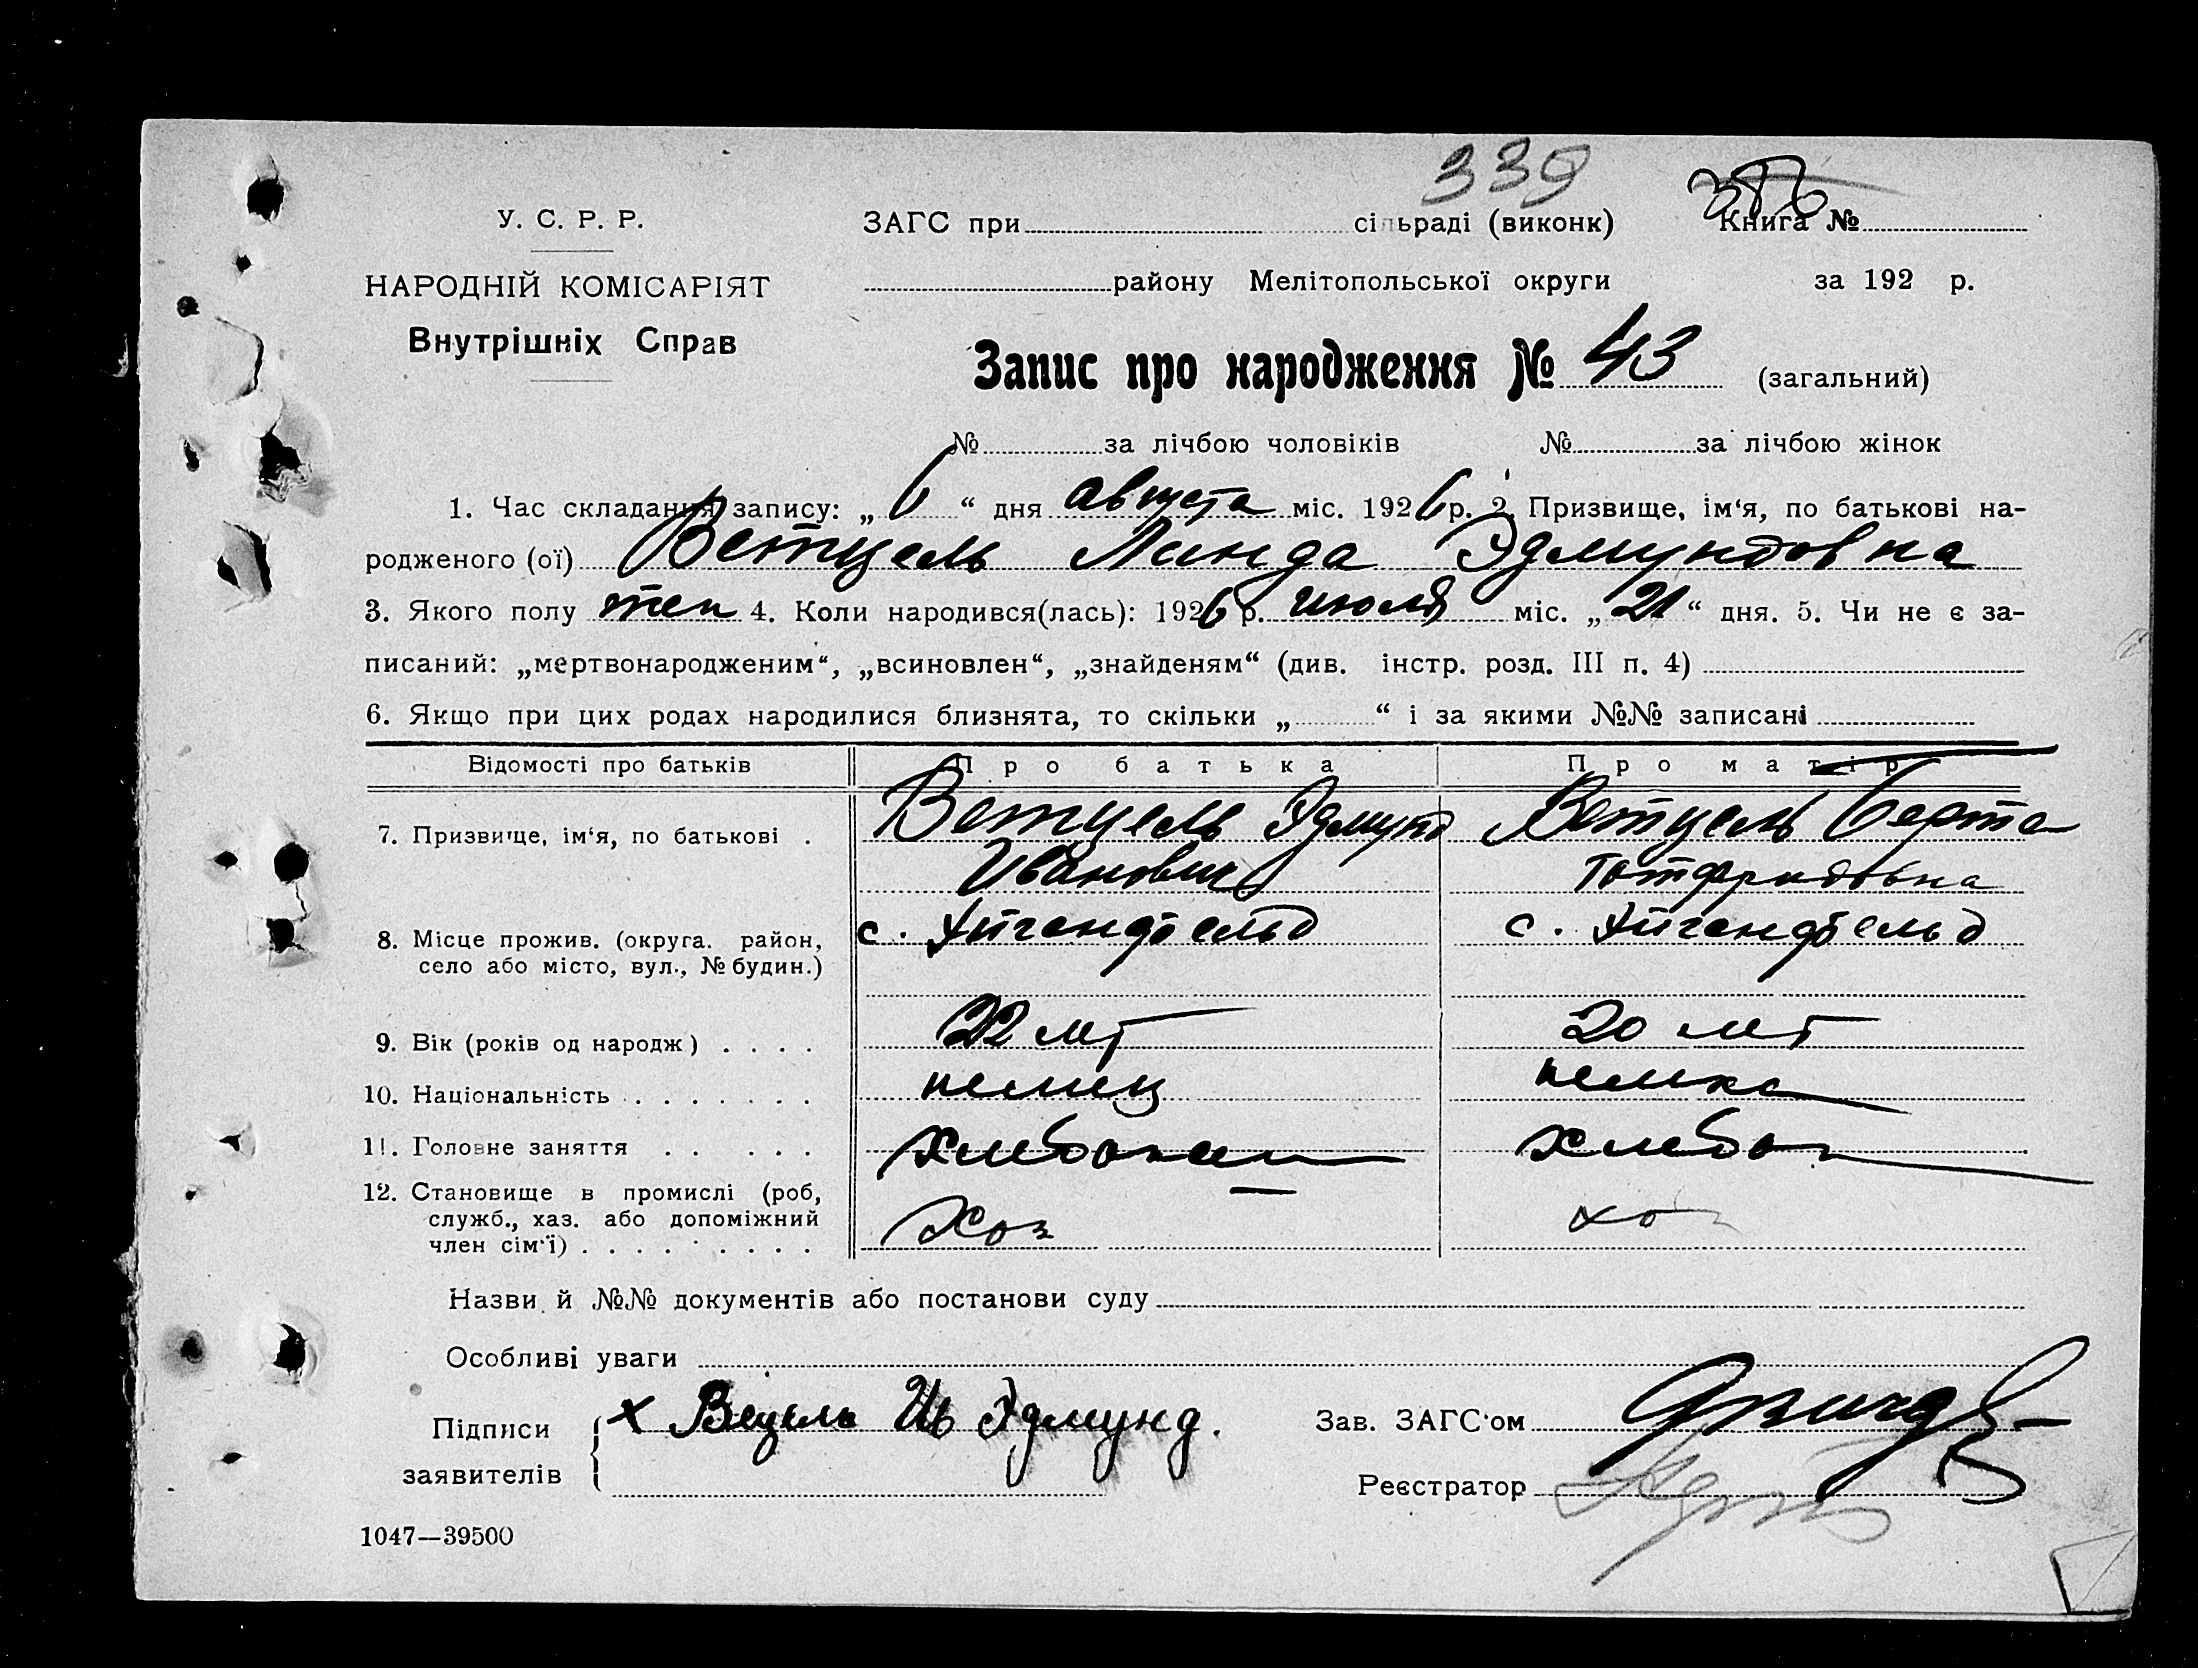 339
386
У. С. Р. Р.
ЗАГС при сільраді (виконк) Книга №
НАРОДНІЙ КОМІСАРІЯТ
району Мелітопольської округи за 192 р.
Внутрішніх Справ
Запис про народження № 43 (загальний)
№ за лічбою чоловіків № за лічбою жінок
1. Час складання запису: „6“ дня августа міс. 1926 р. 2. Призвище, ім‘я, по батькові на-
родженого (ої) Ветцель Линда Эдмундовна
3. Якого полу жен 4. Коли народився(лась): 1926 р. июля міс. „21“ дня. 5. Чи не є за-
писаний: „мертвонародженим“, „всиновлен“, „знайденям“ (див. інстр. розд. III п. 4)
6. Якщо при цих родах народилися близнята, то скільки „ “ і за якими №№ записані
Відомості про батьків Про батька Про матір
7. Призвище, ім‘я, по батькові . Ветцель Эдмунд Ветцель Берта
Иванович Готфридовна
8. Місце прожив. (округа. район, с. с.
село або місто, вул., № будин.)
9. Вік (років од народж) . . . . 22 лет 20 лет
10. Національність . . . . . . . немец немка
11. Головне заняття . . . . . хлебопаш хлебоп
12. Становище в промислі (роб, Хоз хоз
служб., хаз. або допоміжний
член сім‘ї) . . . . . . . . .
Назви й №№ документів або постанови суду
Особливі уваги
Підписи х Вецель Ив Эдмунд.
заявителів
Зав. ЗАГС‘ом
Реєстратор
1047—39500